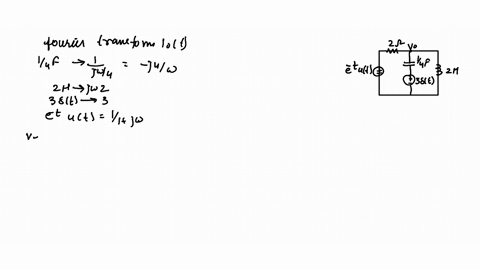 fourier transform i₀(t)
1/4 F → 1/(jω/4) = -j4/ω
2H → jω2
3δ(t) → 3
e^-t u(t) = 1/1+jω
V-
2Ω V₀
e^-t u(t) 1/4 F 2H
3δ(t)